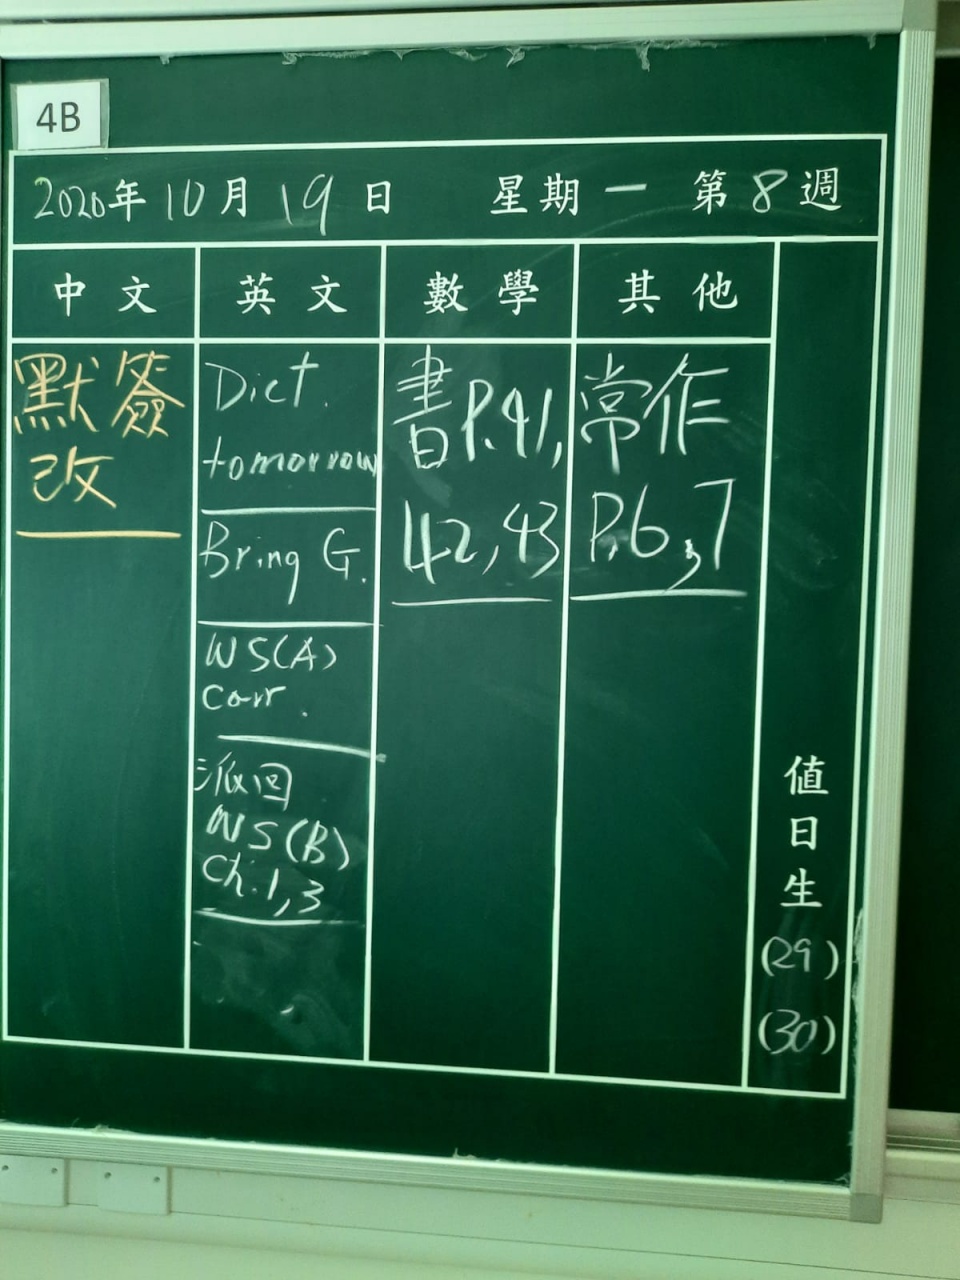 4B
2020年 10月 19日 星期一 第8週
中文
英文
數學
其他
默簽
改
Dict.
tomorrow
Bring G.
WS(A)
Corr.
派回
WS(B)
Ch.1,3
書P.41,
42,43
常作
P.6,7
值日生
(29)
(30)